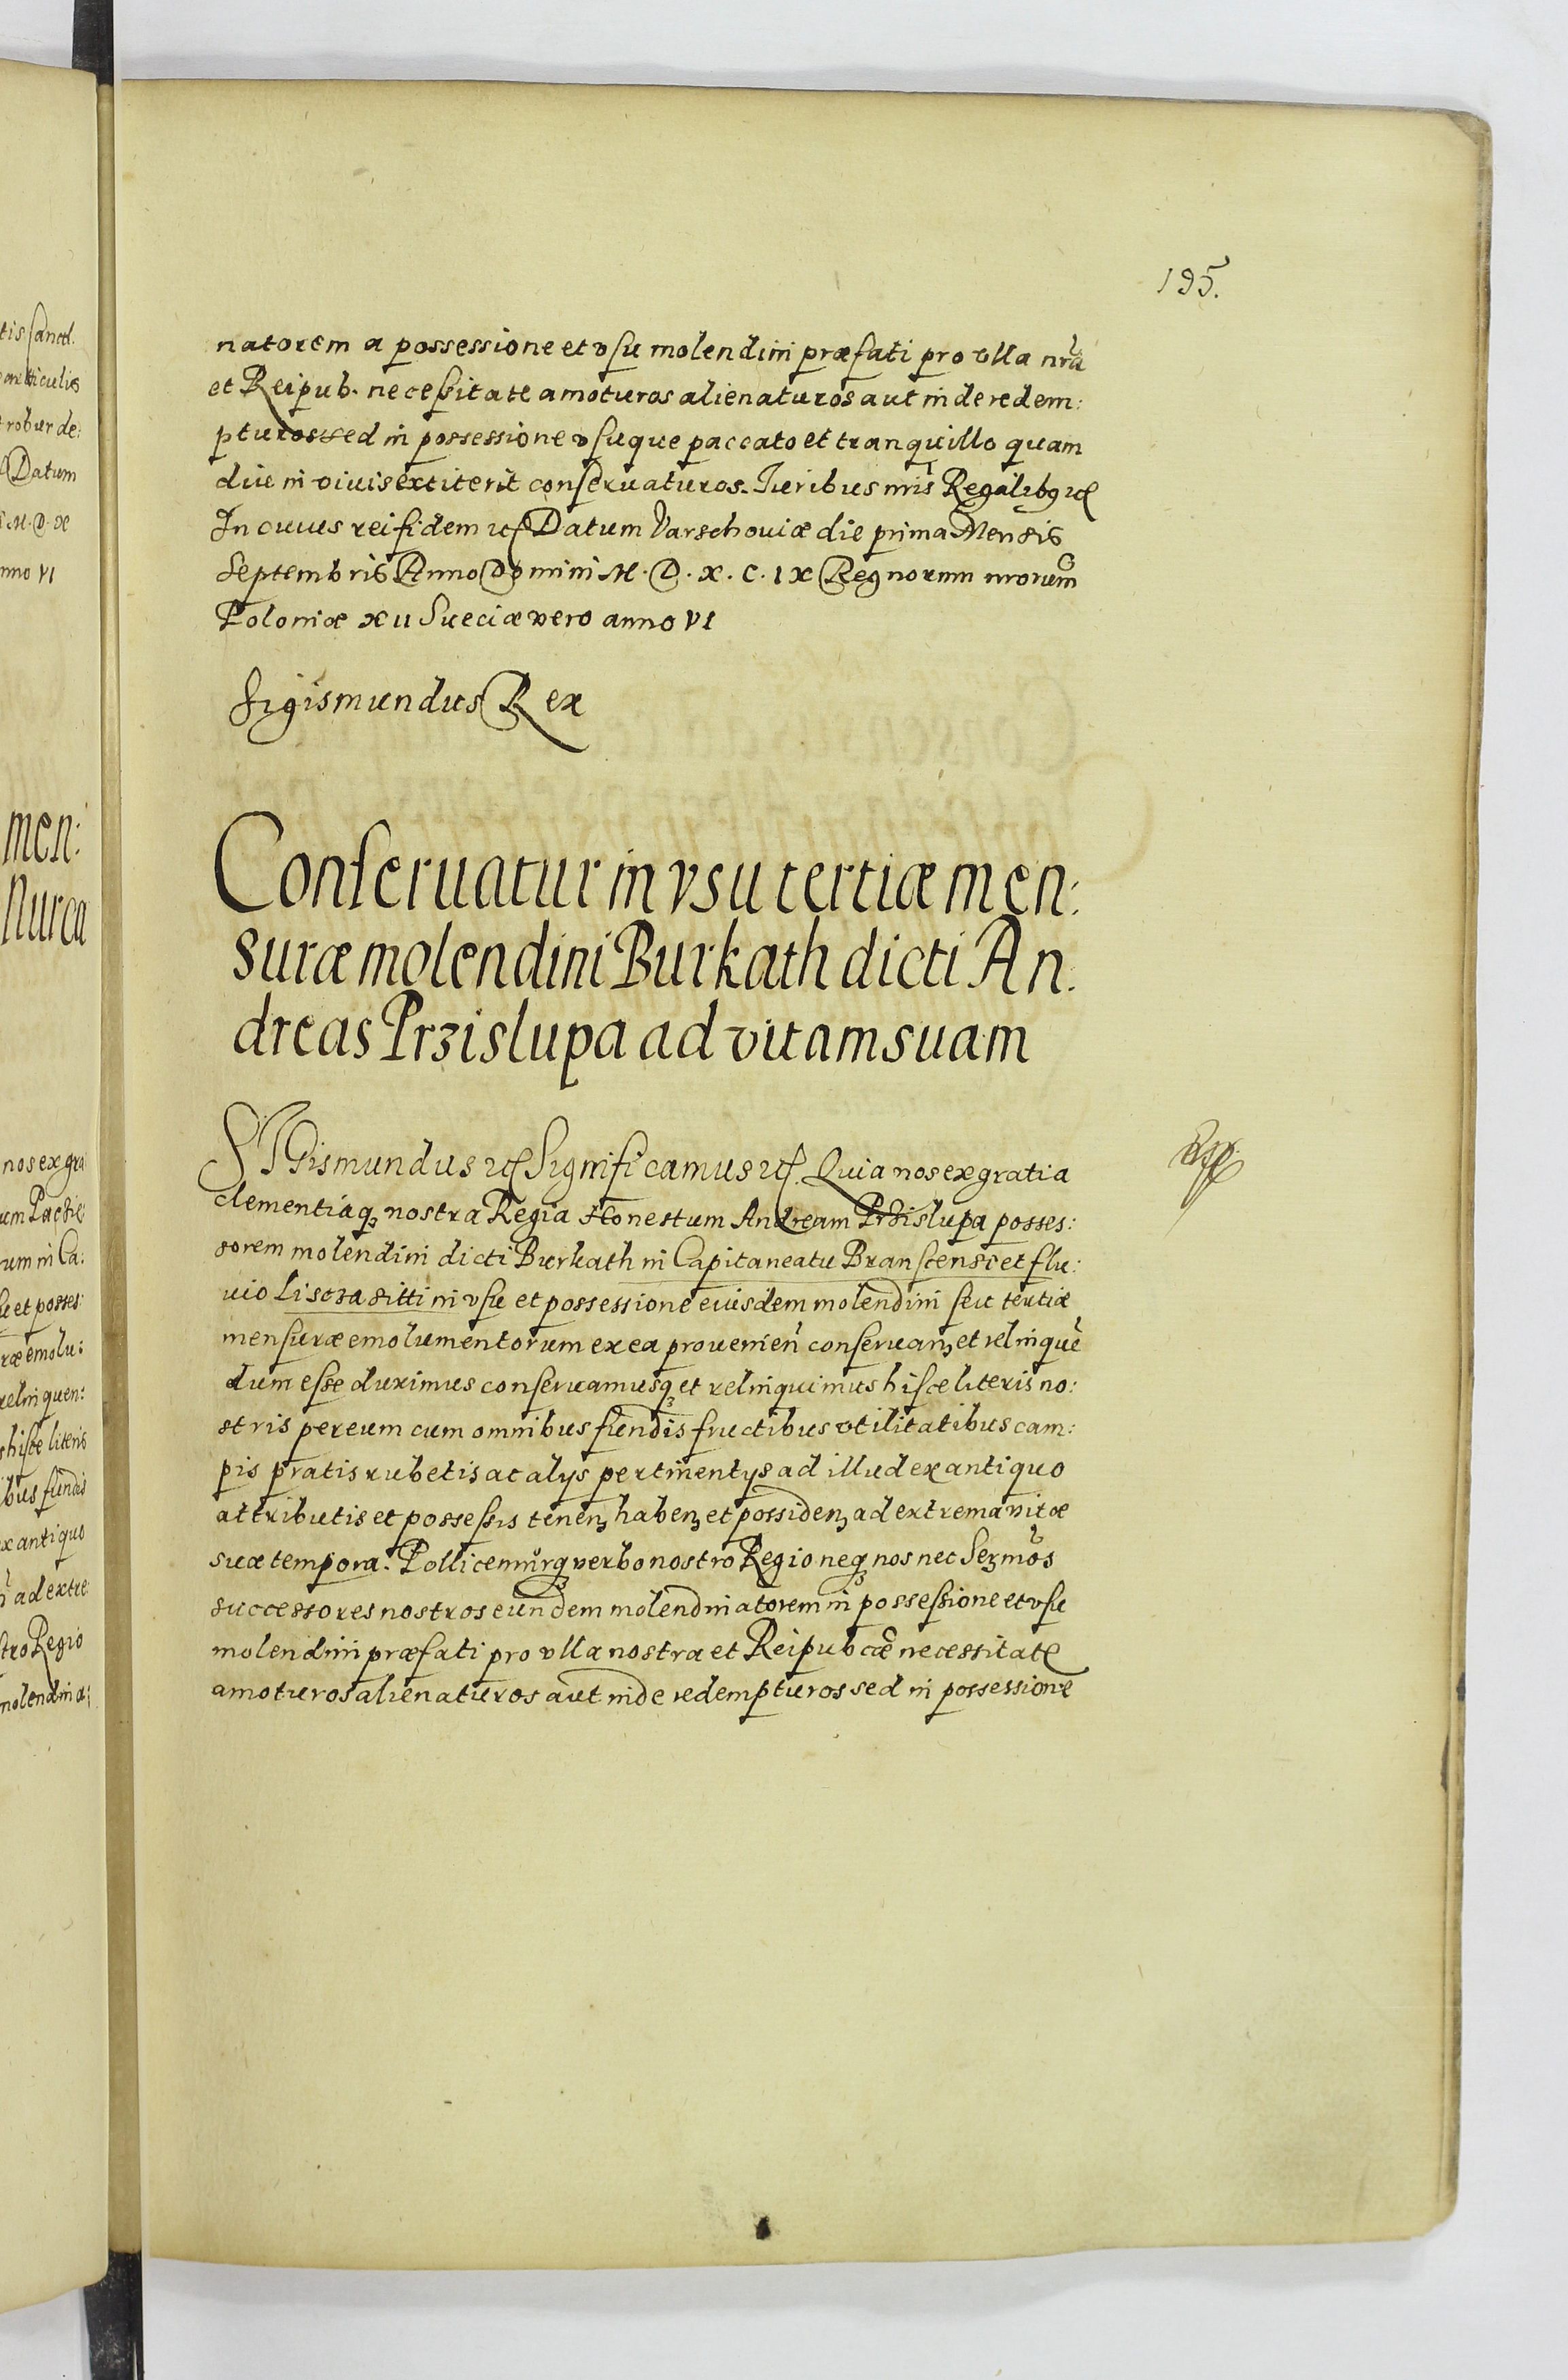 195.
natorem a possessione et vsu molendini præfati pro vlla nrã
et Reipub. necessitate amoturos alienaturos aut inde redem:
pturos sed in possessione vsuque paccato et tranquillo quam
diu in viuis extiterit conseruaturos. Iuribus nris Regalibq etc
In cuius rei fidem etc Datum Varschouiæ die prima Mensis
Septembris Anno Domini M. D. X. C. IX Regnorum nrorum
Poloniæ XII Sueciæ vero anno VI
Sigismundus Rex
Conseruatur in vsu tertiæ men:
suræ molendini Burkath dicti An:
dreas Przislupa ad vitam suam
SIGismundus etc Significamus etc. Quia nos ex gratia
clementiaq nostra Regia Honestum Andream Przislupa posses:
sorem molendini dicti Burkath in Capitaneatu Branscensi et flu:
uio Liscza sitti in vsu et possessione eiusdem molendini seu tertiæ
mensuræ emolumentorum ex ea prouenien conseruan et relinquē
dum esse duximus conseruamusq et relinquimus hisce literis no:
stris per eum cum omnibus fundis fructibus vtilitatibus cam:
pis pratis rubetis ac alys pertinentys ad illud ex antiquo
attributis et possessis tenen haben et possiden ad extrema vitæ
suæ tempora. Pollicemurq verbo nostro Regio neq nos nec Sermos
successores nostros eundem molendinatorem in possessione et vsu
molendini præfati pro vlla nostra et Reipubcæ necessitate
amoturos alienaturos aut inde redempturos sed in possessione
tis sanct.
robur de:
Datum
M. D. X
nno VI
men:
Nurca
nos ex gra
um in Ca:
et posses:
ræ emolu:
relinquen:
hisce literis
bus fundis
ex antiquo
ad extre
stro Regio
molendina: